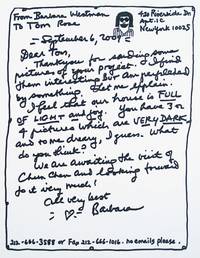 From Barbara Westman
To Tom Rose
420 Riverside Dr
Apt. 1C
New York 10025
September 6, 2009
Dear Tom,
Thank you for sending some
pictures of your project. I find
them interesting but am perplexed
by something. Let me explain.
I feel that our house is FULL
of LIGHT and joy. You have 3 or
4 pictures which are VERY DARK
and to me dreary, I guess. What
do you think?
We are awaiting the visit of
Chen Chen and looking forward
to it very much!
All very best
Barbara
212-666-3588 or Fax 212-666-1016. no emails please.